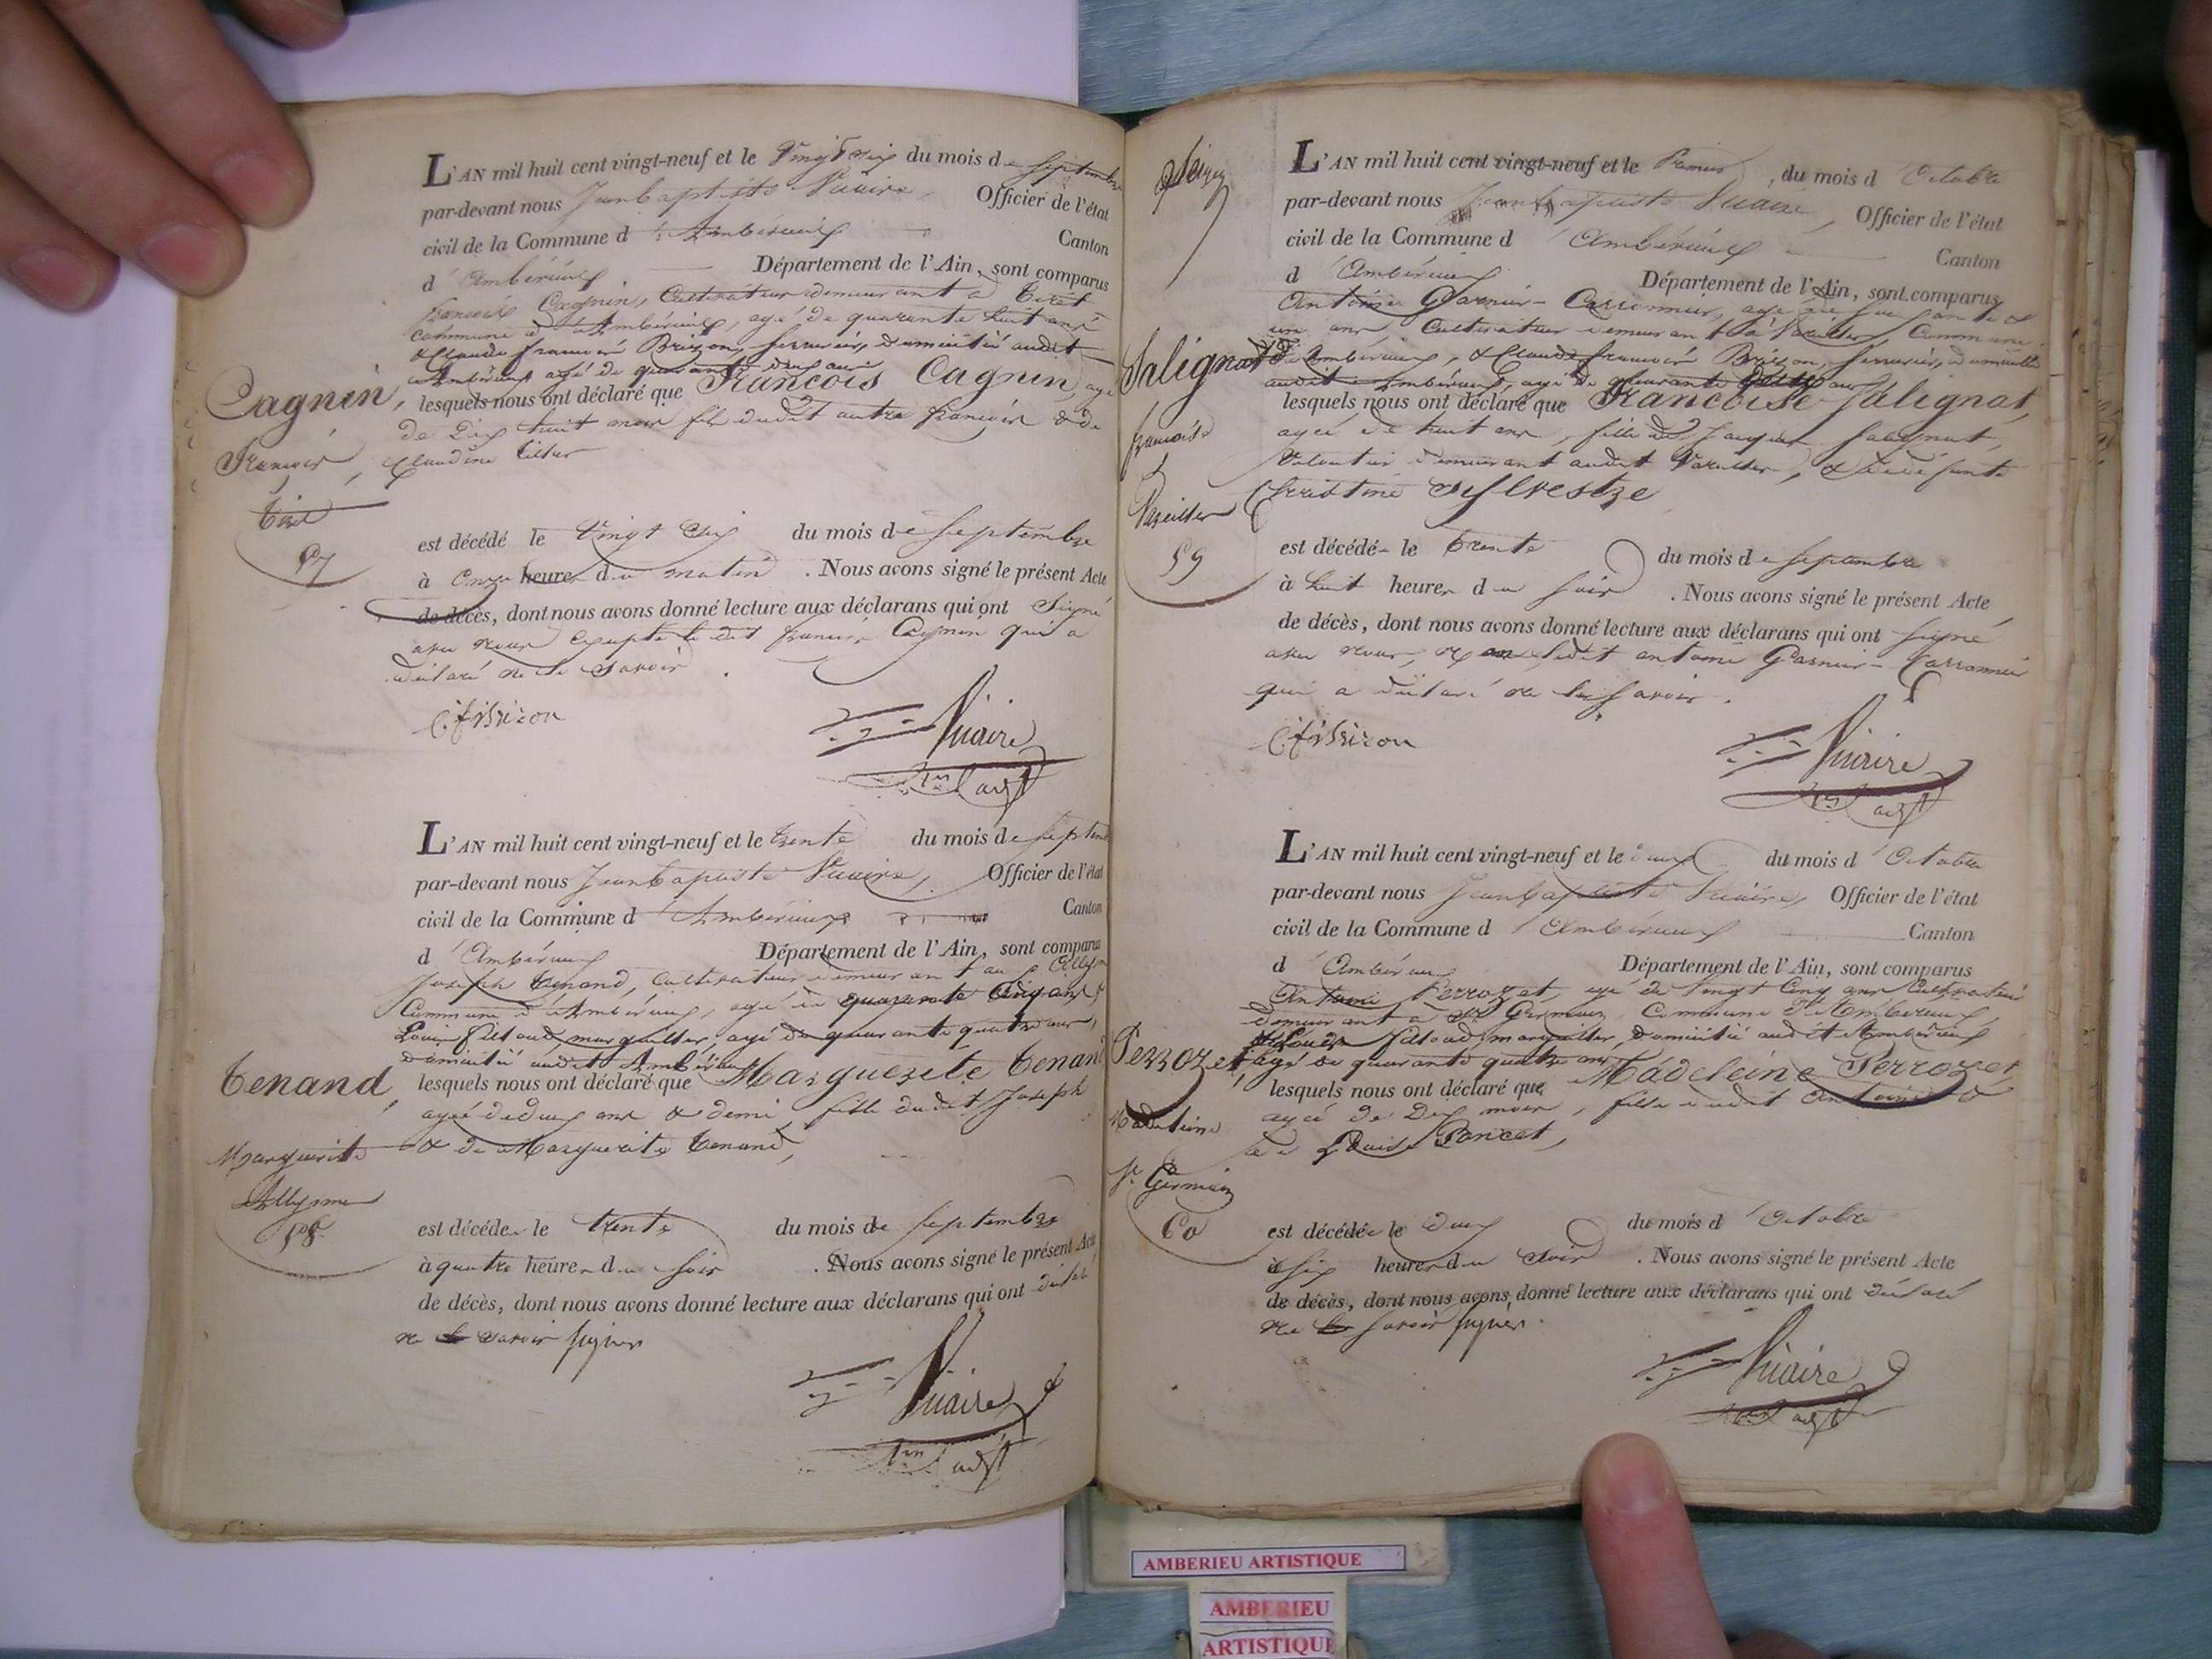 L'AN mil huit cent vingt-neuf et le Vingt Six du mois de Septembre
par-devant nous Jean baptiste Vuaire, Officier de l'état
civil de la Commune d'Ambérieux Canton
d'Ambérieux Département de l'Ain, sont comparus
françois Cagnin, Cultivateur demeurant à Tiret
commune d'Ambérieux, agé de quarante huit ans
& Claude françois Brizon, serrurier, domicilié audit
Ambérieux agé de quarante deux ans
Cagnin,
lesquels nous ont déclaré que François Cagnin, agé
de Dix huit mois fils dudit autre françois & de
François,
Claudine
Tiret
57
est décédé le Vingt Six du mois de Septembre
à Onze heures du matin. Nous avons signé le présent Acte
de décès, dont nous avons donné lecture aux déclarans qui ont Signé
avec nous excepté le dit françois Cagnin qui a
déclaré ne le Savoir.
C. f. Brizon
Vuaire
L'AN mil huit cent vingt-neuf et le trente du mois de Septem
par-devant nous Jean baptiste Vuaire, Officier de l'état
civil de la Commune d'Ambérieux Canton
d'Ambérieux Département de l'Ain, sont comparus
Joseph Tenand, Cultivateur demeurant au
Commune d'Ambérieux, agé de quarante Cinq ans &
Louis filloud, marguillier, agé de quarante quatre ans,
domicilié audit Ambérieux
Tenand,
lesquels nous ont déclaré que Marguerite Tenand
agée de deux ans & demi, fille dudit Joseph
Marguerite
& de Marguerite Tenand,
Allymes
58
est décédée le trente du mois de Septembre
à quatre heures du Soir. Nous avons signé le présent Acte
de décès, dont nous avons donné lecture aux déclarans qui ont déclaré
ne savoir signer
Vuaire
L'AN mil huit cent vingt-neuf et le Premier, du mois d'Octobre
par-devant nous Jean baptiste Vuaire, Officier de l'état
civil de la Commune d'Ambérieux Canton
d'Ambérieux Département de l'Ain, sont comparus
Antoine Garnier-Carronnier, agé de Soixante &
un ans, Cultivateur demeurant à Vareilles, Commune
d'Ambérieux, & Claude françois Brizon, serrurier, domicilié
Salignat
audit Ambérieux, agé de quarante deux ans
lesquels nous ont déclaré que Francoise Salignat,
françoise
agée de huit ans, fille de Jacques Salignat,
demeurant audit Vareilles, & de défunte
Vareilles
Christine Sylvestre
59
est décédée le trente du mois de Septembre
à huit heures du Soir. Nous avons signé le présent Acte
de décès, dont nous avons donné lecture aux déclarans qui ont signé
avec nous, ledit antoine Garnier-Carronnier
qui a déclaré ne le Savoir.
C. f. Brizon
Vuaire
L'AN mil huit cent vingt-neuf et le deux du mois d'Octobre
par-devant nous Jean baptiste Vuaire, Officier de l'état
civil de la Commune d'Ambérieux Canton
d'Ambérieux Département de l'Ain, sont comparus
Antoine Perrozet, agé de Vingt Cinq ans Cultivateur
demeurant à St. Germain Commune d'Ambérieux,
& Louis filloud, marguillier, domicilié audit Ambérieux
Perrozet,
agé de quarante quatre ans
lesquels nous ont déclaré que Madeleine Perrozet
Madeleine
agée de Dix mois, fille dudit Antoine &
de Louise Poncet,
St. Germain
60
est décédée le Deux du mois d'Octobre
à six heures du Soir. Nous avons signé le présent Acte
de décès, dont nous avons donné lecture aux déclarans qui ont déclaré
ne savoir signer.
Vuaire
AMBERIEU ARTISTIQUE
AMBERIEU
ARTISTIQUE